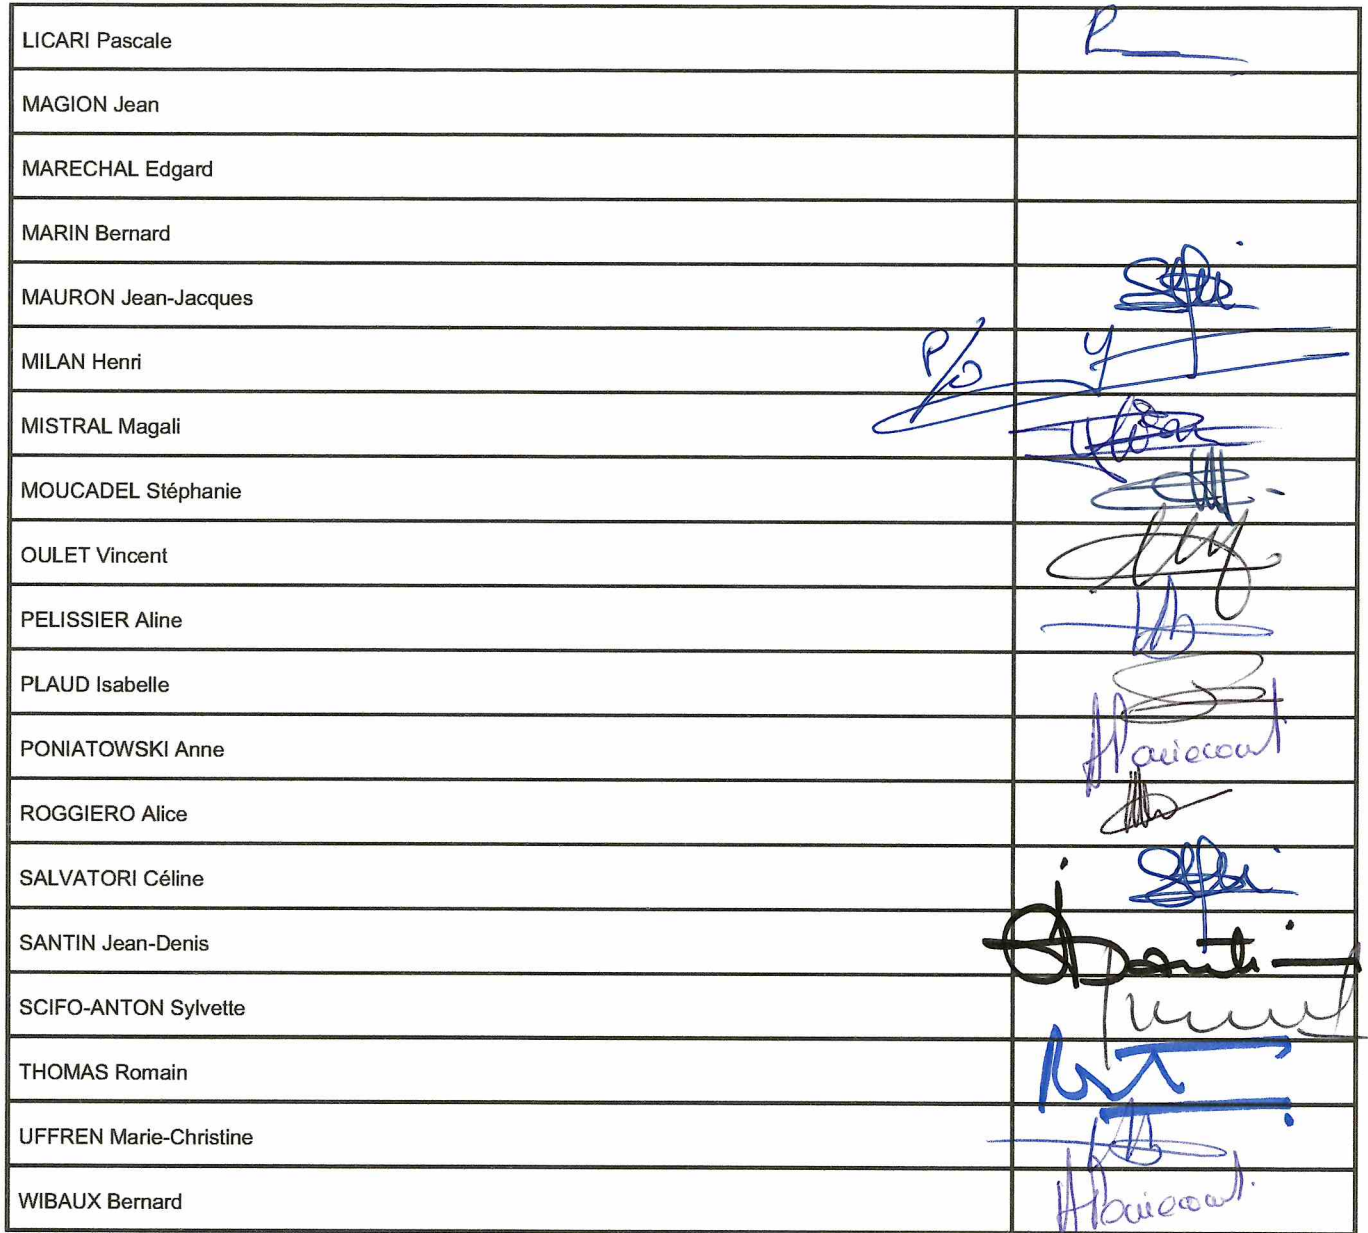 LICARI Pascale
MAGION Jean
MARECHAL Edgard
MARIN Bernard
MAURON Jean-Jacques
MILAN Henri
P/o
MISTRAL Magali
MOUCADEL Stéphanie
OULET Vincent
PELISSIER Aline
PLAUD Isabelle
PONIATOWSKI Anne
ROGGIERO Alice
SALVATORI Céline
SANTIN Jean-Denis
SCIFO-ANTON Sylvette
THOMAS Romain
UFFREN Marie-Christine
WIBAUX Bernard